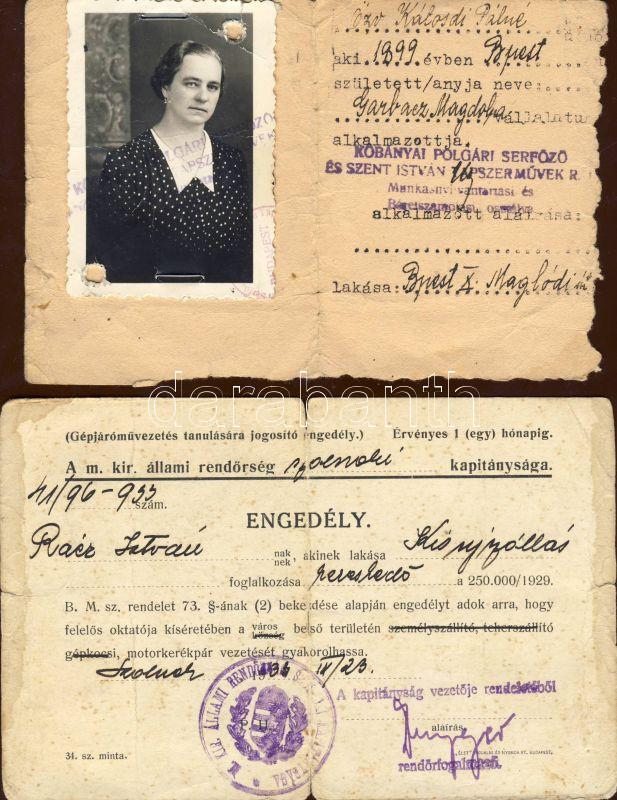 Özv Kálosdi Pálné
aki 1899 évben Bpest
született/anyja neve:
Garbacz Magdolna vállalatunk
alkalmazottja.
KŐBÁNYAI POLGÁRI SERFŐZŐ
ÉS SZENT ISTVÁN TÁPSZERMŰVEK R
Munkásnyilvántartási és
Bérelszámolási osztálya
alkalmazott aláírása:
lakása: Bpest X. Maglódi út
darabanth
(Gépjáróművezetés tanulására jogosító engedély.) Érvényes 1 (egy) hónapig.
A m. kir. állami rendőrség szolnoki kapitánysága.
41/96-933 szám.
ENGEDÉLY.
Rácz István nak nek, akinek lakása Kisujszállás
foglalkozása kereskedő a 250.000/1929.
B. M. sz. rendelet 73. §-ának (2) bekezdése alapján engedélyt adok arra, hogy
felelős oktatója kíséretében a város község belső területén személyszállító, teherszállító
gépkocsi, motorkerékpár vezetését gyakorolhassa.
Szolnok 193 III/23.
M. KIR. ÁLLAMI RENDŐRSÉG
P. H.
A kapitányság vezetője rendeletéből
aláírás.
rendőrfogalmazó.
34. sz. minta.